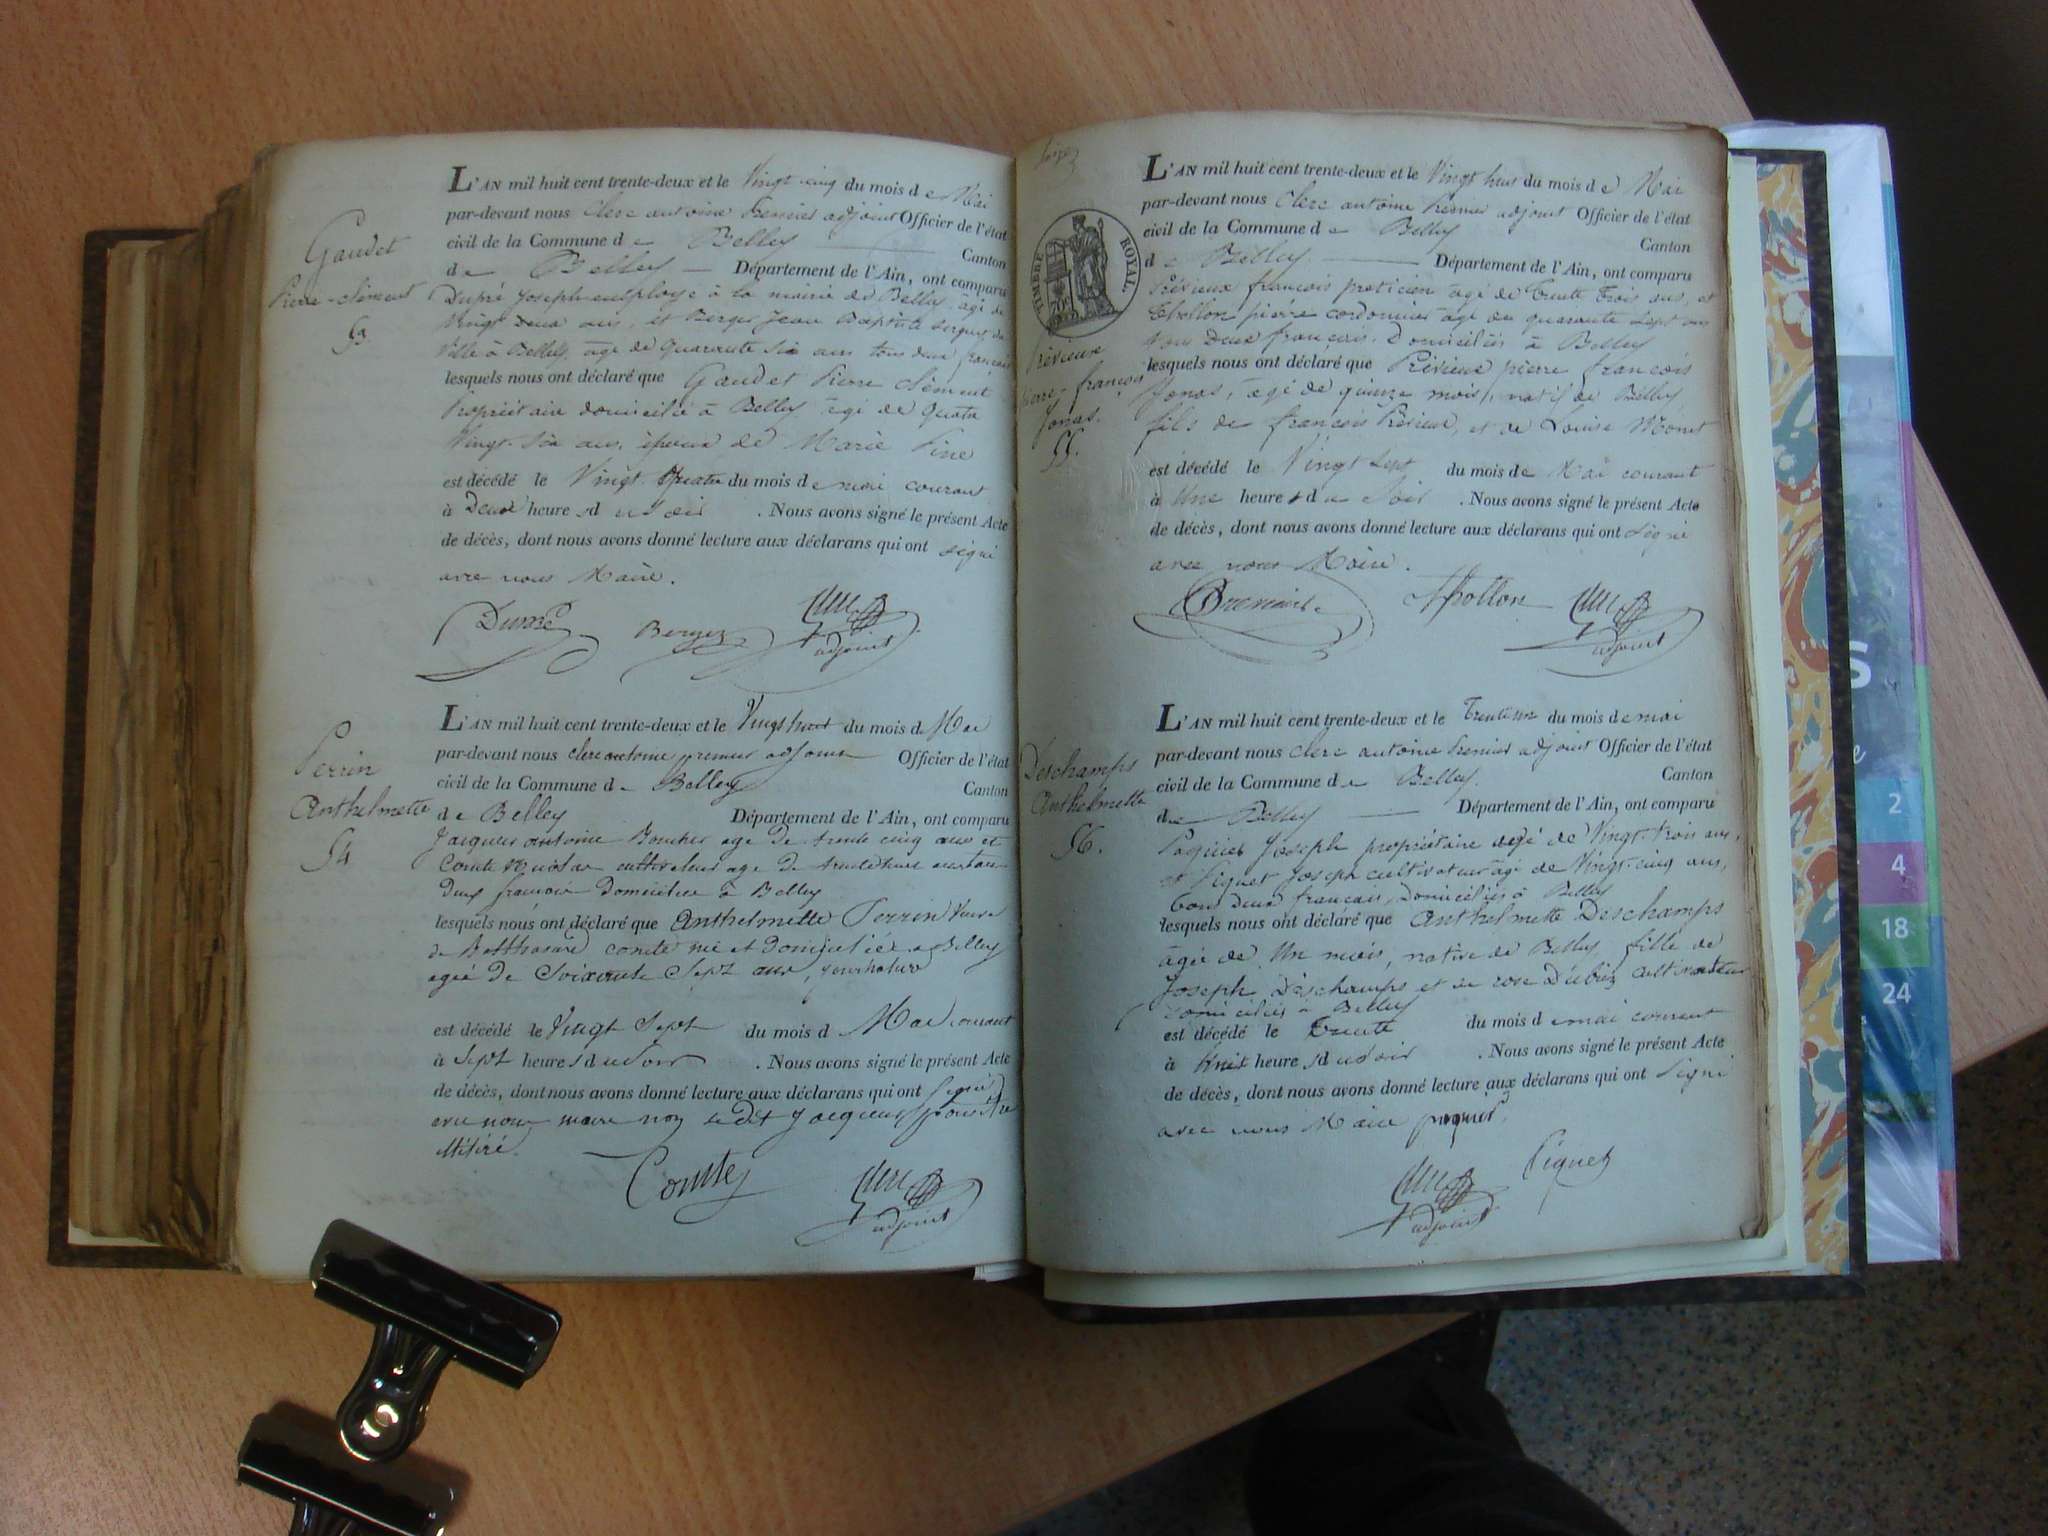 Gaudet
Pierre-Clément
53.
L'AN mil huit cent trente-deux et le Vingt-cinq du mois de Mai
par-devant nous Clerc antoine Premier adjoint Officier de l'état
civil de la Commune de Belley Canton
de Belley Département de l'Ain, ont comparu
Dupré Joseph employé à la mairie de Belley âgé de
Vingt deux ans, et Berger Jean Baptiste sergent de
Ville à Belley, âgé de quarante six ans tous deux français
lesquels nous ont déclaré que Gaudet Pierre Clément
Propriétaire domicilié à Belley âgé de quatre
Vingt-six ans, époux de Marie Pine
est décédé le Vingt-quatre du mois de mai courant
à Deux heures du soir . Nous avons signé le présent Acte
de décès, dont nous avons donné lecture aux déclarans qui ont signé
avec nous Maire.
Dupré Berger Clerc
adjoint
Perrin
Anthelmette
54
L'AN mil huit cent trente-deux et le Vingt huit du mois de Mai
par-devant nous Clerc antoine premier adjoint Officier de l'état
civil de la Commune de Belley Canton
de Belley Département de l'Ain, ont comparu
Jacques antoine age De trente cinq ans et
Comte cultivateur age De ans tous
Deux francois Domicilies à Belley
lesquels nous ont déclaré que Anthelmette Perrin Veuve
de Balthasard comte né et Domiciliée a Belley
agée De Soixante Sept ans,
est décédé le Vingt Sept du mois de Mai courant
à Sept heures du Soir . Nous avons signé le présent Acte
de décès, dont nous avons donné lecture aux déclarans qui ont Signé
avec nous maire non le Dt Jacques pour être
illitéré.
Comte Clerc
adjoint
TIMBRE ROYAL.
Prévieux
pierre-françois
Jonas.
55.
L'AN mil huit cent trente-deux et le Vingt huit du mois de Mai
par-devant nous Clerc antoine Premier adjoint Officier de l'état
civil de la Commune de Belley Canton
de Belley Département de l'Ain, ont comparu
Prévieux françois praticien âgé de trente trois ans, et
Thollon pierre cordonnier âgé de quarante sept ans
tous deux français, domiciliés à Belley
lesquels nous ont déclaré que Prévieux pierre françois
Jonas, âgé de quinze mois, natif de Belley,
fils de françois Prévieux, et de Louise Monet
est décédé le Vingt sept du mois de Mai courant
à Une heure du Soir . Nous avons signé le présent Acte
de décès, dont nous avons donné lecture aux déclarans qui ont signé
avec nous Maire.
Thollon Clerc
adjoint
Deschamps
Anthelmette
56.
L'AN mil huit cent trente-deux et le Trente un du mois de mai
par-devant nous Clerc antoine Premier adjoint Officier de l'état
civil de la Commune de Belley. Canton
de Belley Département de l'Ain, ont comparu
Joseph propriétaire agé de Vingt-trois ans,
et Piquet Joseph cultivateur âgé de Vingt-cinq ans,
tous deux français, domiciliés à Belley
lesquels nous ont déclaré que Anthelmette Deschamps
âgée de Un mois, native de Belley, fille de
Joseph Deschamps et de rose cultivateur
domiciliés à Belley
est décédé le trente du mois de mai courant
à huit heures du soir . Nous avons signé le présent Acte
de décès, dont nous avons donné lecture aux déclarans qui ont signé
avec nous Maire
Piquet
Clerc
adjoint
S
e
2
4
18
24